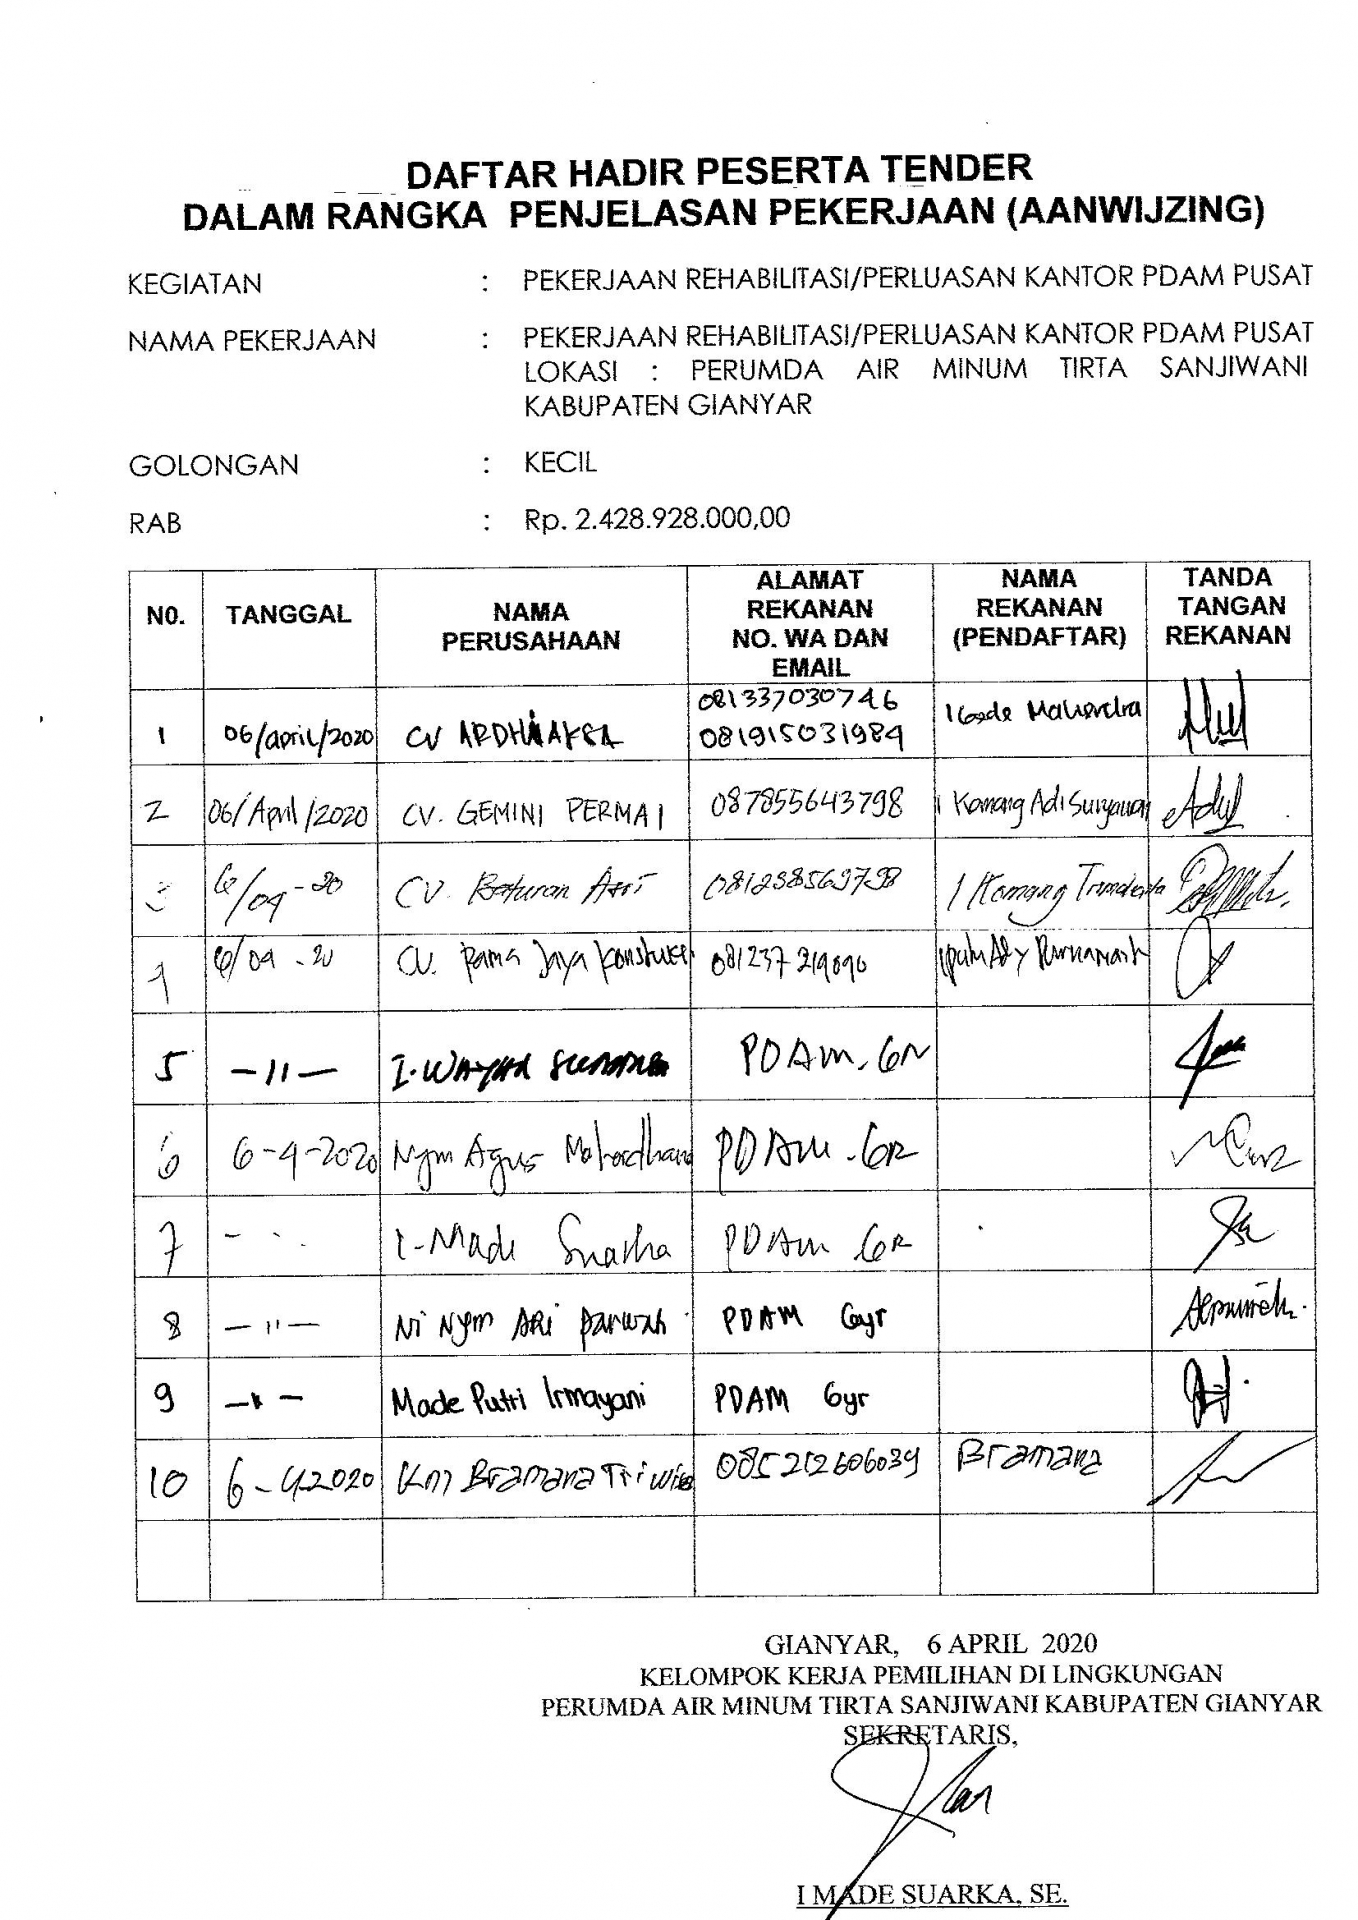 DAFTAR HADIR PESERTA TENDER
DALAM RANGKA PENJELASAN PEKERJAAN (AANWIJZING)
KEGIATAN : PEKERJAAN REHABILITASI/PERLUASAN KANTOR PDAM PUSAT
NAMA PEKERJAAN : PEKERJAAN REHABILITASI/PERLUASAN KANTOR PDAM PUSAT
LOKASI : PERUMDA AIR MINUM TIRTA SANJIWANI
KABUPATEN GIANYAR
GOLONGAN : KECIL
RAB : Rp. 2.428.928.000,00
NO. TANGGAL NAMA PERUSAHAAN ALAMAT REKANAN NO. WA DAN EMAIL NAMA REKANAN (PENDAFTAR) TANDA TANGAN REKANAN
1 06/april/2020 CV 081337030746 081915031984 I Gede Mahendra
2 06/April/2020 CV. GEMINI PERMAI 087855643798 I Komang Adi Suryawan
3 6/04-20 CV. Baturan Asri I Komang
4 6/04-20 CV. Rama Jaya 081237219090
5 —11— I. WAYAN PDAM. GR
6 6-4-2020 Nym Agus PDAM. GR
7 I-Made Suarka PDAM GR
8 —11— Ni Nym ARi PDAM Gyr
9 Made Putri Irmayani PDAM Gyr
10 6-4-2020 Km Bramana Tri 085212606039 Bramana
GIANYAR, 6 APRIL 2020
KELOMPOK KERJA PEMILIHAN DI LINGKUNGAN
PERUMDA AIR MINUM TIRTA SANJIWANI KABUPATEN GIANYAR
SEKRETARIS,
I MADE SUARKA, SE.